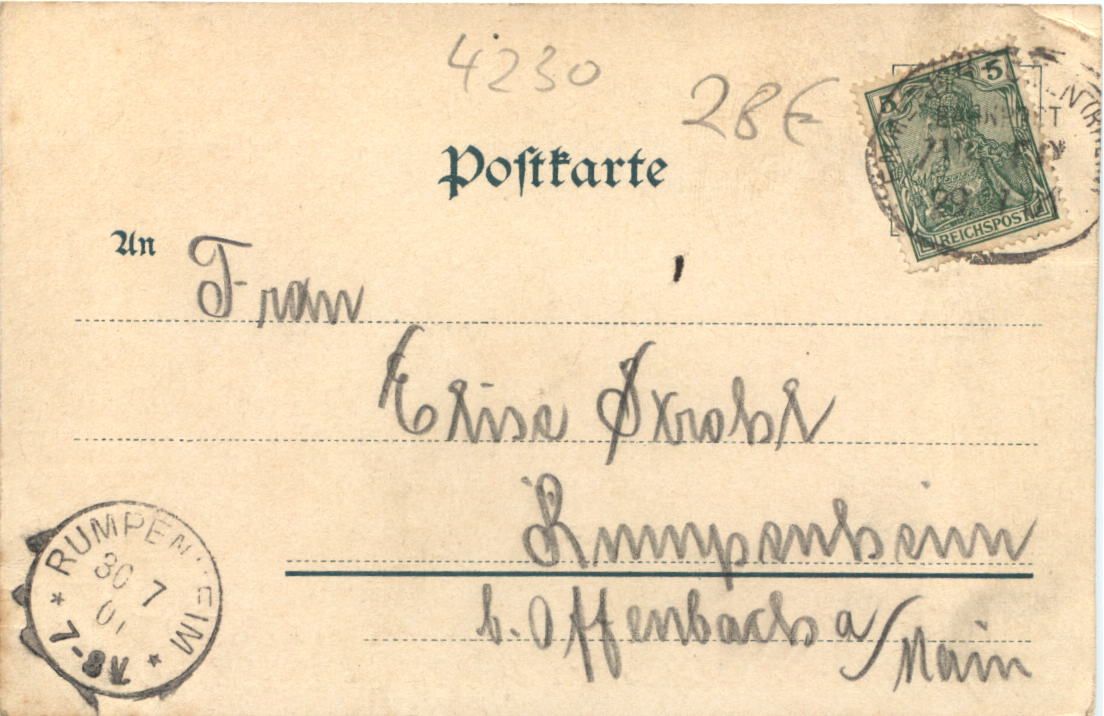 4230
28€
Postkarte
5 5
REICHSPOST
BAHNPOST
An Frau
Elise Strohl
Rumpenheim
b. Offenbach a/Main
* RUMPENHEIM *
30 7
01
7-8V